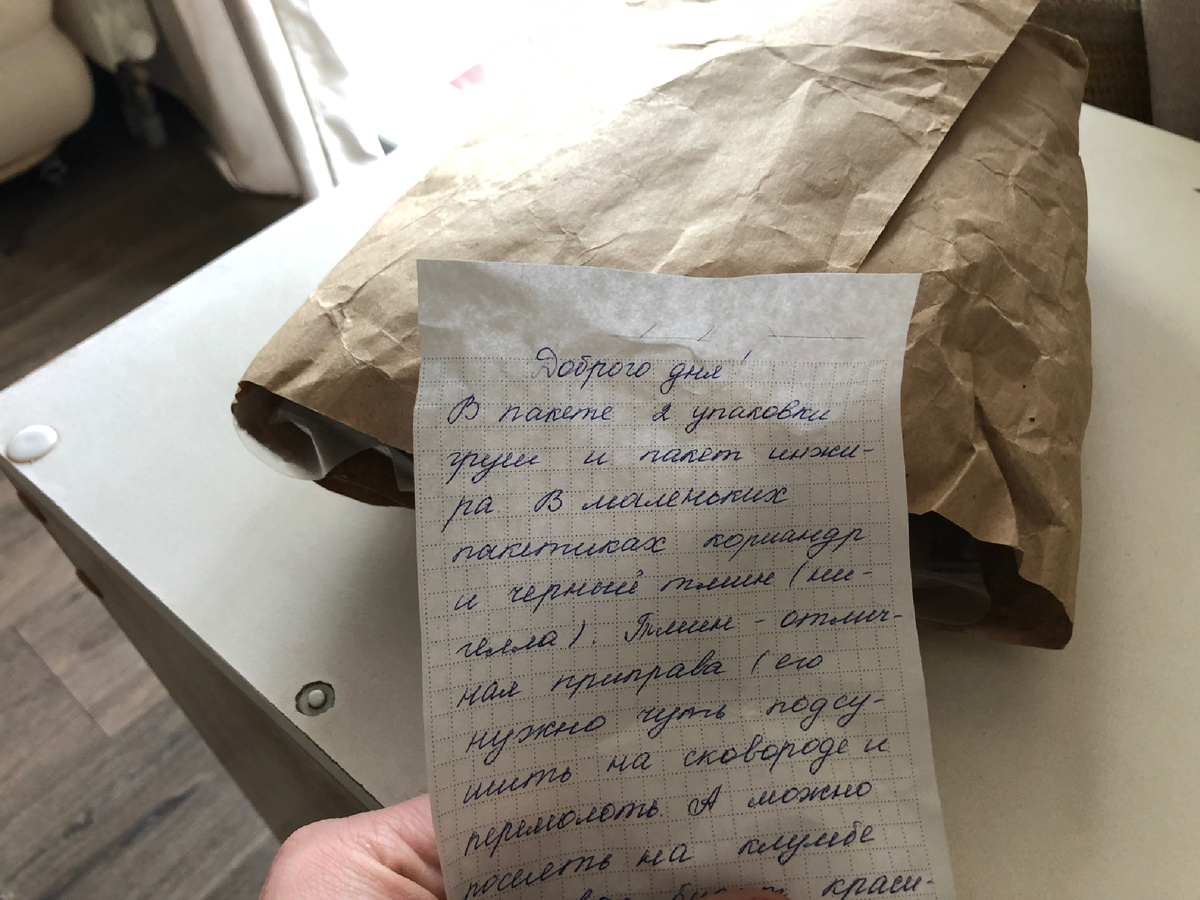 Доброго дня!
В пакете 2 упаковки
груш и пакет инжи-
ра В маленьких
пакетиках кориандр
и черный тмин (ни-
гелла). Тмин - отлич-
ная приправа (его
нужно чуть подсу-
шить на сковороде и
перемолоть. А можно
посеять на клумбе
будет краси-